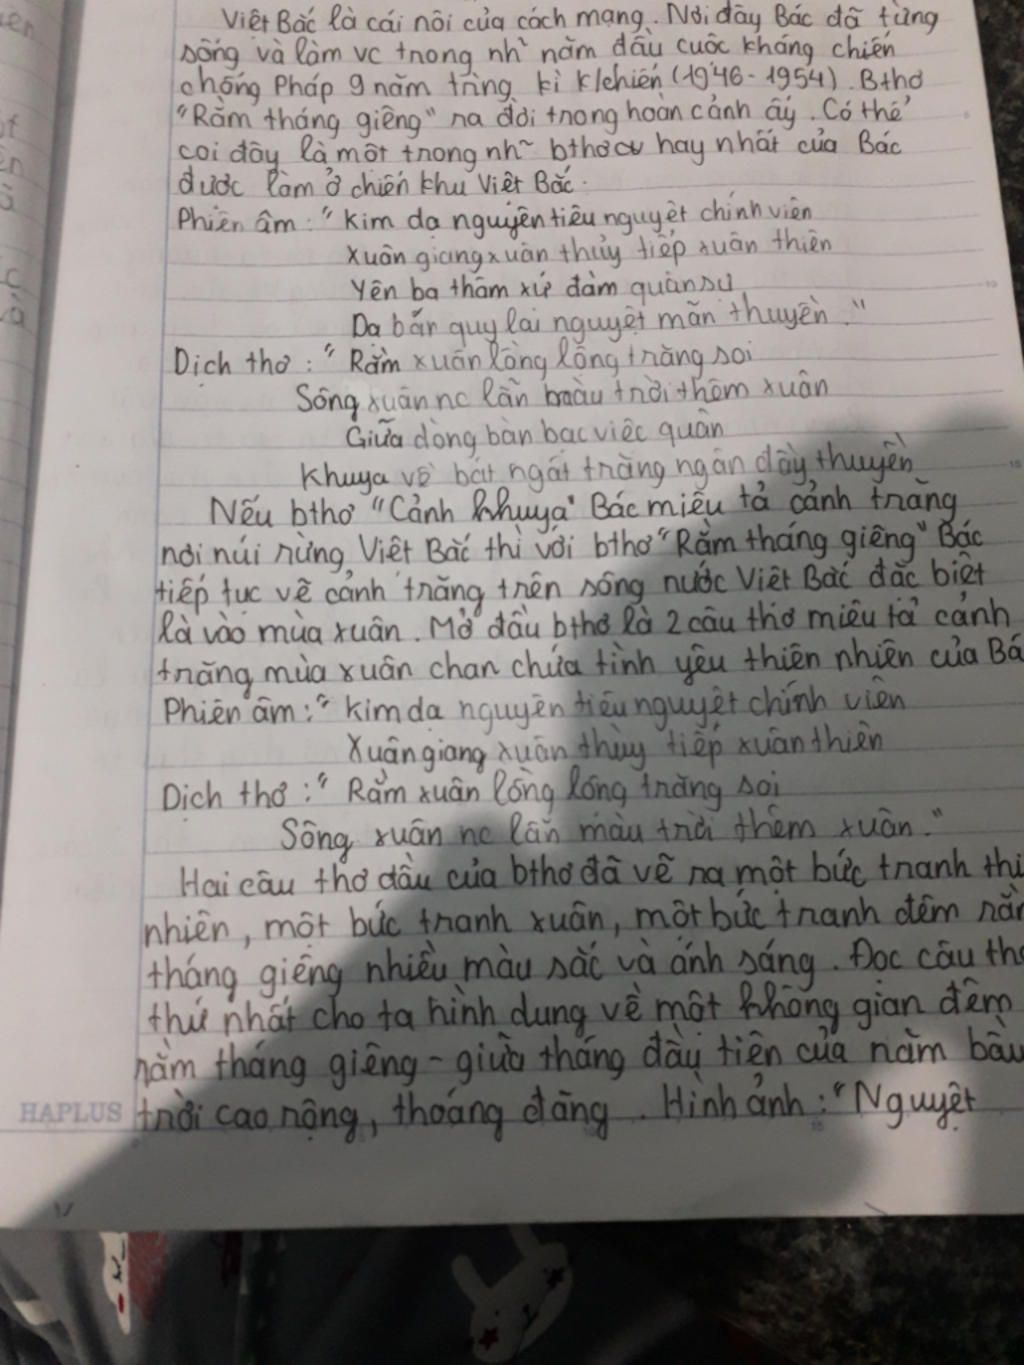 Việt Bắc là cái nôi của cách mạng. Nơi đây Bác đã từng
sống và làm vc trong nh~ năm đầu cuộc kháng chiến
chống Pháp 9 năm trừng kì k/chiến (1946-1954). Bthơ
"Rằm tháng giêng" ra đời trong hoàn cảnh ấy. Có thể
coi đây là một trong nh~ bthơ hay nhất của Bác
được làm ở chiến khu Việt Bắc.
Phiên âm: "Kim dạ nguyên tiêu nguyệt chính viên
Xuân giang xuân thủy tiếp xuân thiên
Yên ba thâm xứ đàm quân sự
Dạ bán quy lai nguyệt mãn thuyền."
Dịch thơ: "Rằm xuân lồng lộng trăng soi
Sông xuân nc lẫn màu trời thêm xuân
Giữa dòng bàn bạc việc quân
Khuya về bát ngát trăng ngân đầy thuyền
Nếu bthơ "Cảnh khuya" Bác miêu tả cảnh trăng
nơi núi rừng Việt Bắc thì với bthơ "Rằm tháng giêng" Bác
tiếp tục vẽ cảnh trăng trên sông nước Việt Bắc đặc biệt
là vào mùa xuân. Mở đầu bthơ là 2 câu thơ miêu tả cảnh
trăng mùa xuân chan chứa tình yêu thiên nhiên của Bá
Phiên âm: "Kim dạ nguyên tiêu nguyệt chính viên
Xuân giang xuân thủy tiếp xuân thiên
Dịch thơ: "Rằm xuân lồng lộng trăng soi
Sông xuân nc lẫn màu trời thêm xuân."
Hai câu thơ đầu của bthơ đã vẽ ra một bức tranh thi
nhiên, một bức tranh xuân, một bức tranh đêm rằ
tháng giêng nhiều màu sắc và ánh sáng. Đọc câu thơ
thứ nhất cho ta hình dung về một không gian đêm
rằm tháng giêng - giữa tháng đầu tiên của năm bầu
trời cao rộng, thoáng đãng. Hình ảnh: "Nguyệt
HAPLUS